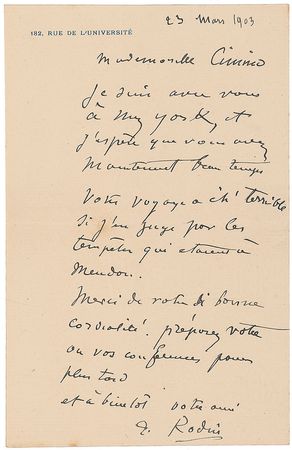 23 Mars 1903
182, RUE DE L'UNIVERSITÉ
Mademoiselle Cimino
Je suis avec vous
à New york, et
j'espère que vous avez
maintenant beau temps
Votre voyage a été terrible
si j'en juge par les
tempêtes qui étaient à
Meudon.
Merci de votre si bonne
cordialité. préparez votre
ou vos conférences pour
plus tard
et à bientôt votre ami
A. Rodin